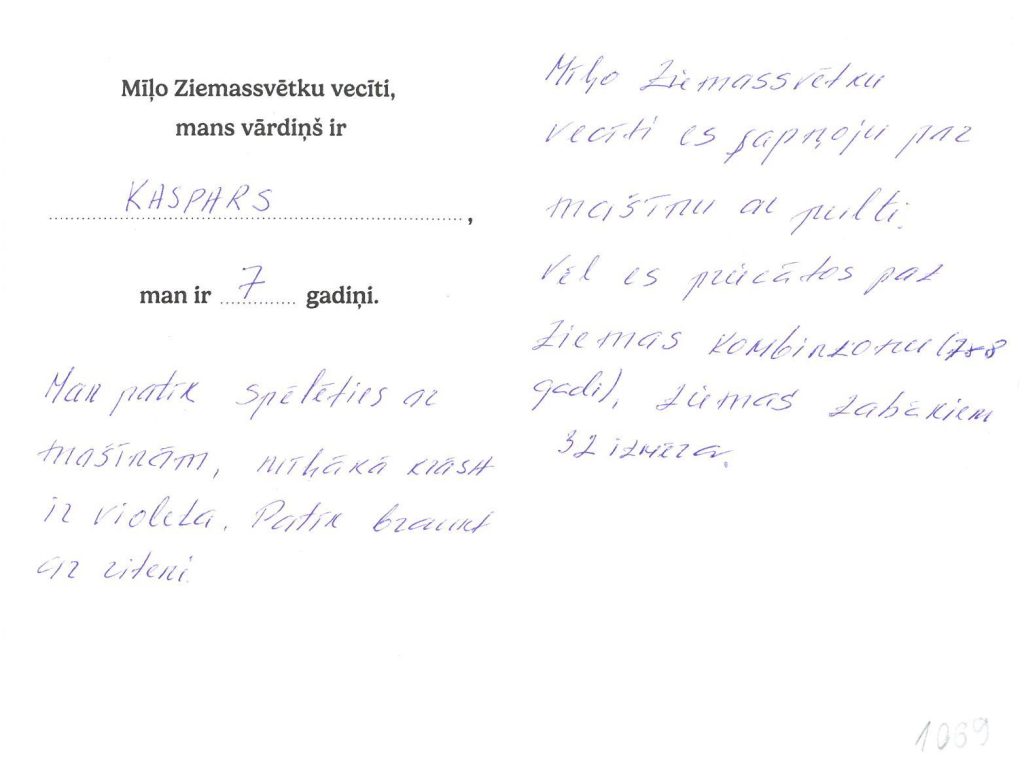 Mīļo Ziemassvētku vecīti,
mans vārdiņš ir
KASPARS,
man ir 7 gadiņi.
Man patīk spēlēties ar
mašīnām, mīļākā krāsa
ir violeta. Patīk braukt
ar riteni.
Mīļo Ziemassvētku
vecīti es sapņoju par
mašīnu ar pulti.
Vēl es priecātos par
ziemas kombinzonu (7-8
gadi), ziemas zabakiem
32 izmēra.
1069